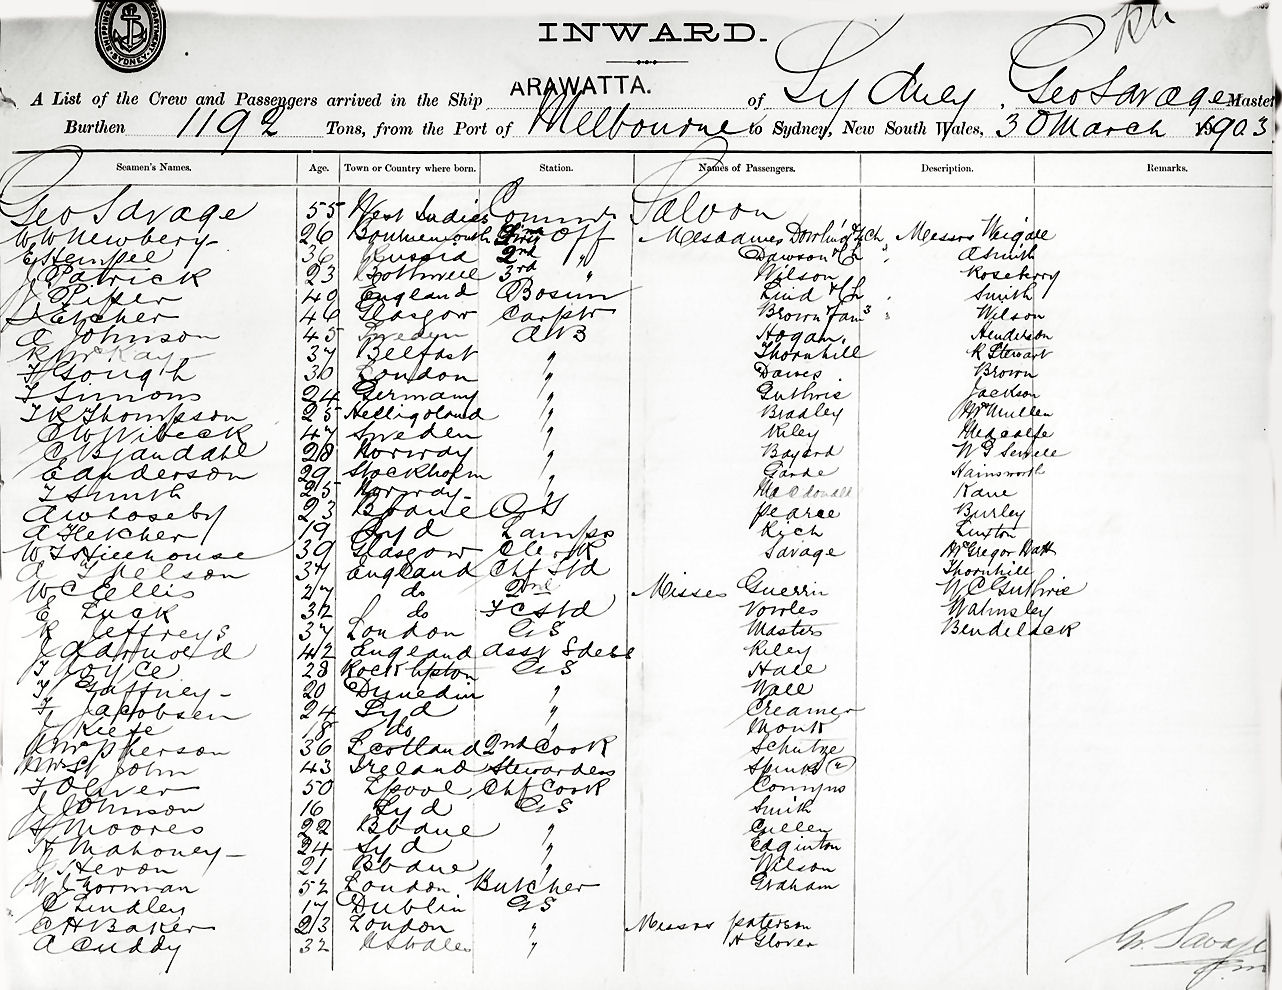 INWARD.
ARAWATTA.
A List of the Crew and Passengers arrived in the Ship of Sydney, Geo Savage Master
Burthen 1192 Tons, from the Port of Melbourne to Sydney, New South Wales, 30 March 1903
Seamen's Names. Age. Town or Country where born. Station. Names of Passengers. Description. Remarks.
Geo Savage 55 West Indies Comm Saloon
W W Newbery 26 Bournemouth First Off Mesdames Dowling & Ch Messrs Weigall
E Stempel 36 Russia 2nd " Dawson & Ch A Smith
J Patrick 23 Bothwell 3rd " Wilson Rosebery
J Piper 40 England Bosun Lind & Ch Smith
Fletcher 46 Glasgow Carptr Brown & fam 3 Wilson
A Johnson 45 Sweden AB Hogan Henderson
R McKay 37 Belfast " Thornhill R Stewart
H Gough 30 London " Dawes Brown
Simons 24 Germany " Guthrie Jackson
T R Thompson 25 Helligoland " Bradley McMullen
C W Wibeck 47 Sweden " Riley Medcalfe
C Bjandahl 28 Norway " Bayard W G Sewell
E Anderson 29 Stockholm " Garde Hainsworth
T Smith 25 Norway " MacDonald Kane
A W Loseby 23 Bbane OS Pearce Burley
A Fletcher 19 Syd Lamps Rich Linton
W T Hillhouse 39 Glasgow Clerk Savage McGregor Watt
A Thelson 37 England Chf Std Thornhill
W C Ellis 27 do 2nd Misses Guerrin W C Guthrie
E Luck 32 do F C Std Vowles Walmsley
R Jeffreys 37 London GS Masters Bendelack
J A Arnold 42 England Asst Riley
T Joyce 28 Rockhpton GS Hall
T Gaffney 20 Dunedin " Wall
F Jacobsen 24 Syd " Creamer
J Keefe 18 do " Monk
McPherson 36 Scotland 2nd Cook Schutze
Mrs St John 43 Ireland Stewardess Spinks (2)
F Oliver 50 Lpool Chf Cook Comyns
J Johnson 16 Syd GS Smith
H Moores 22 Bbane " Culley
H Mahoney 24 Syd " Edginton
J Hevon 21 Bbane " Wilson
W Thorman 52 London Butcher Graham
C Lindley 17 Dublin GS
C H Baker 23 London " Messrs Paterson
A Cuddy 32 N S Wales " H Glover
G. Savage